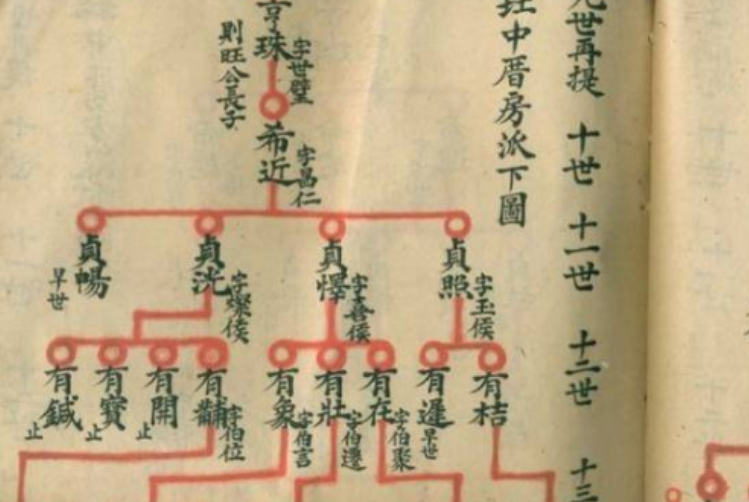 世再提 十世 十一世 十二世 十三
中厝房派下圖
亨珠
字世璧
則旺公長子
希近
字昌仁
貞照
字玉侯
貞懌
字喜侯
貞洸
字燦侯
貞暢
早世
有桔
有暹
早世
有在
字伯聚
有壯
字伯還
有象
字伯言
有黼
字伯位
有開
止
有寶
止
有鍼
止